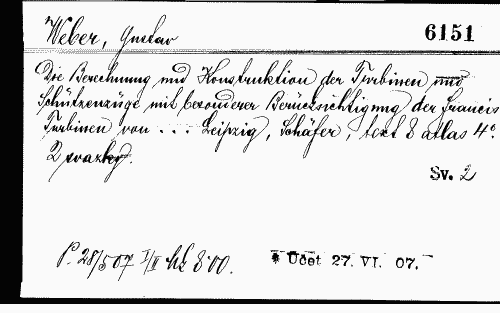 Weber, Gustav 6151
Die Berechnung und Konstruktion der Turbinen und
Schützenzüge mit besonderer Berücksichtigung der Francis
Turbinen von ... Leipzig, Schäfer, text 8 atlas 4°.
2 svazky.
Sv. 2
P. 28/507 I/II Mk 8·00. Účet 27. VI. 07.